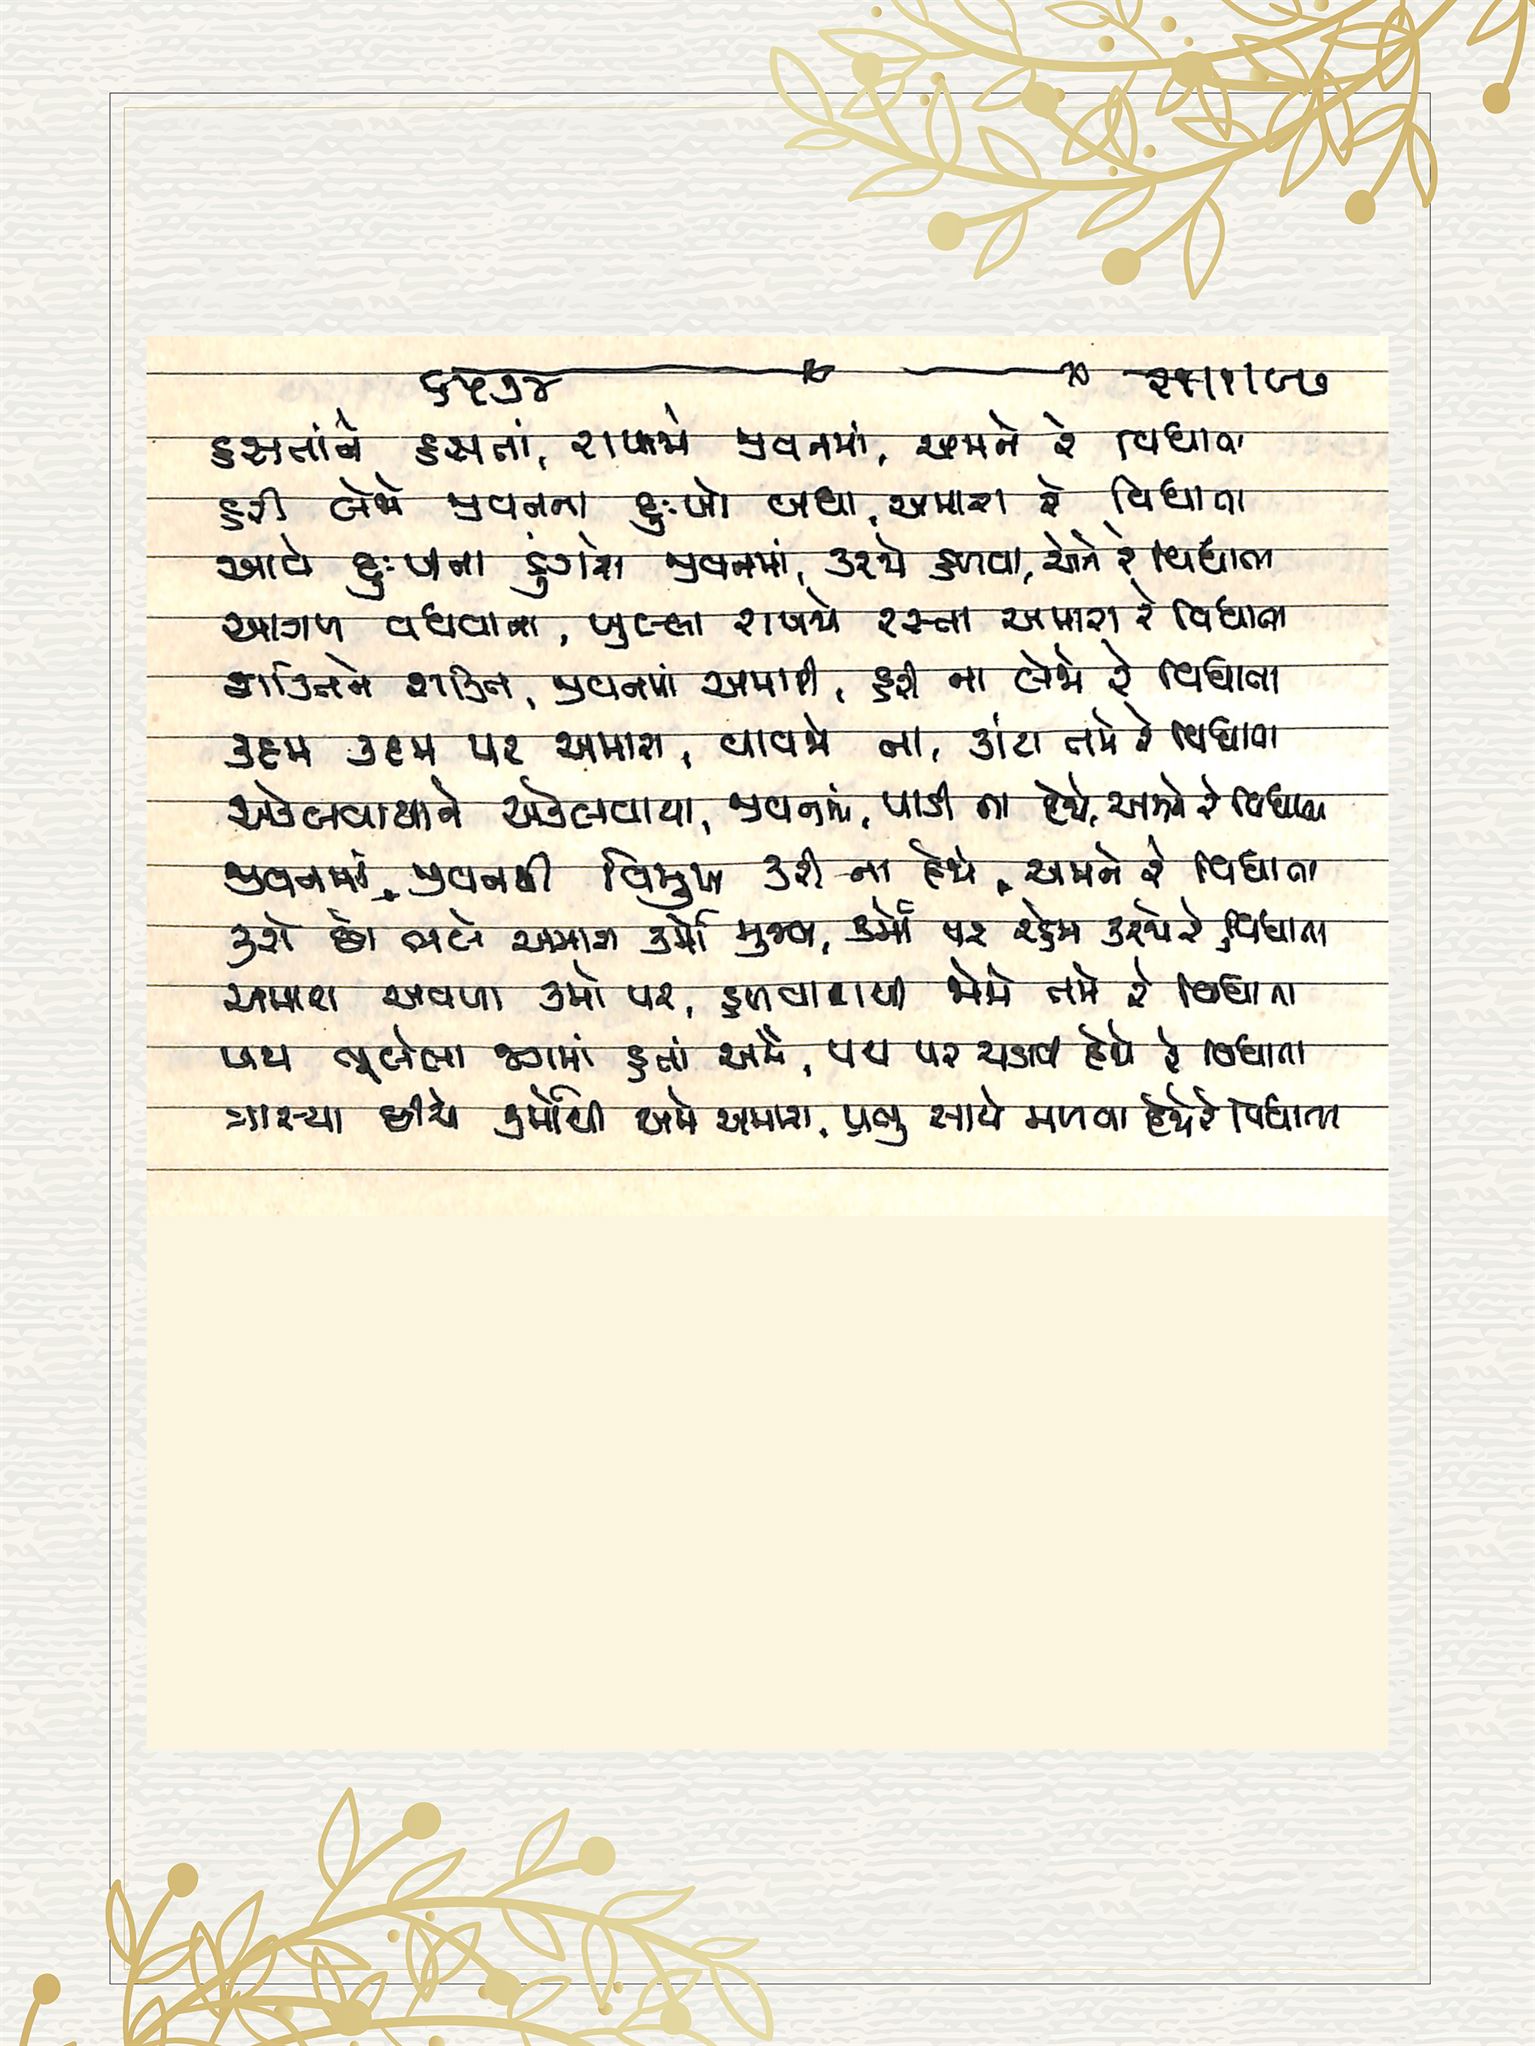 ૬૫૭૪ ૨૧|૧|૯૭
હસતાંને હસતાં, રાખજે જીવનમાં, અમને રે વિધાતા
હરી લેજે જીવનના દુઃખો બધા, અમારા રે વિધાતા
આવે દુઃખના ડુંગરો જીવનમાં, કરજે હળવા, એને રે વિધાતા
આગળ વધવાના, ખુલ્લા રાખજે રસ્તા અમારા રે વિધાતા
શક્તિને શક્તિ, જીવનમાં અમારી, હરી ના લેજે રે વિધાતા
કદમ કદમ પર અમારા, વાવજે ના, કાંટા તમે રે વિધાતા
એકલવાયાને એકલવાયા, જીવનમાં, પાડી ના દેજે, અમને રે વિધાતા
જીવનમાં, જીવનથી વિમુખ કરી ના દેજે, અમને રે વિધાતા
કરો છો ભલે અમારા કર્મો મુજબ, કર્મો પર રહેમ કરજે રે વિધાતા
અમારા અવળા કર્મો પર, હળવાશથી જોજે તમે રે વિધાતા
પથ ભૂલેલા જગમાં હતાં અમે, પથ પર ચડાવી દેજે રે વિધાતા
ત્રાસ્યા છીએ કર્મોથી અમે અમારા, પ્રભુ સાથે મળવા દેજે રે વિધાતા